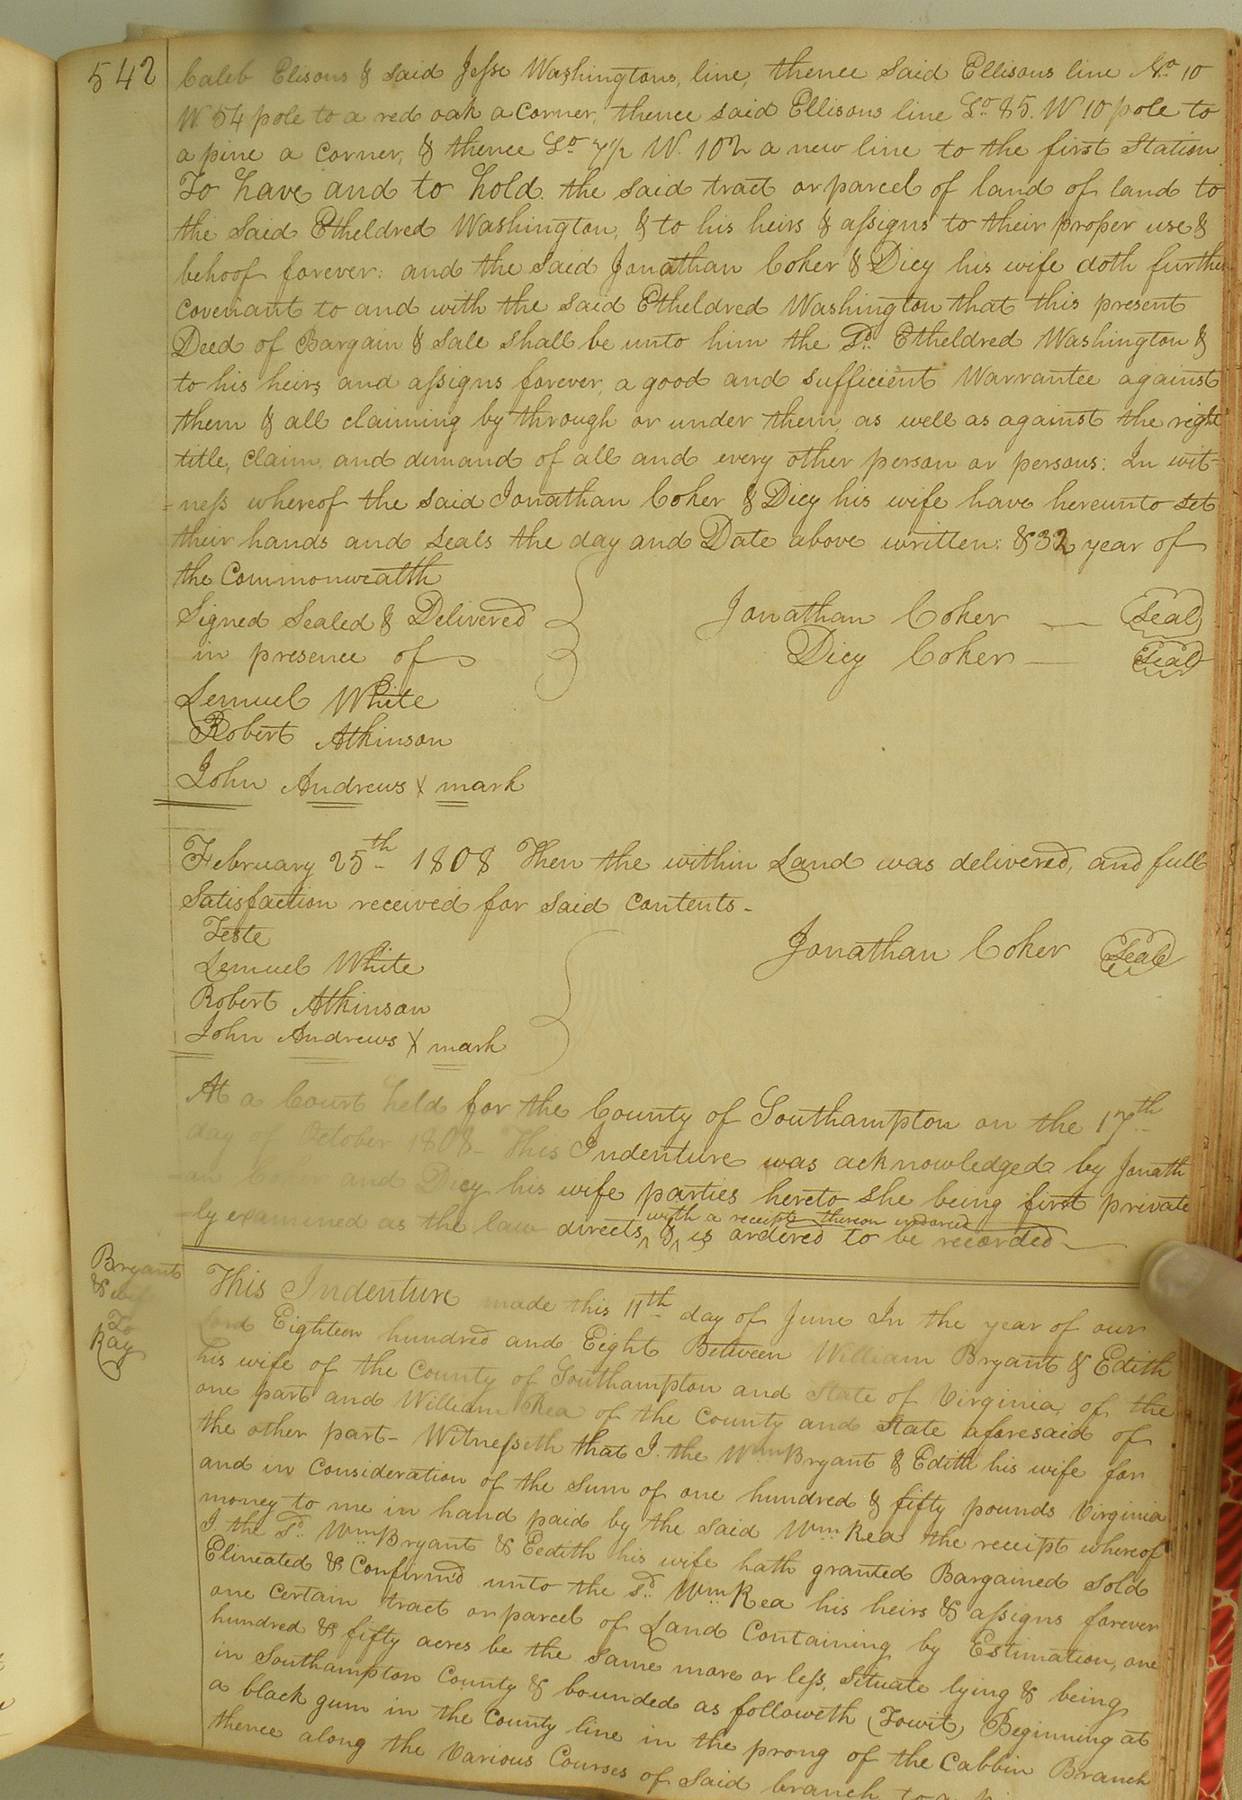 542
Caleb Elisons & said Jesse Washingtons, line, thence said Ellisons line No. 10
W. 54 pole to a red oak a corner, thence said Ellisons line So. 85. W 10 pole to
a pine a corner, & thence So 7½ W. 102 a new line to the first Station
To have and to hold the said tract or parcel of land of land to
the said Etheldred Washington, & to his heirs & assigns to their proper use &
behoof forever: and the said Jonathan Coker & Dicy his wife doth further
covenant to and with the said Etheldred Washington that this present
Deed of Bargain & Sale shall be unto him the Sd. Etheldred Washington &
to his heirs and assigns forever, a good and sufficient Warrantee against
them & all claiming by through or under them, as well as against the right
title, claim, and demand of all and every other person or persons: In wit-
-ness whereof the said Jonathan Coker & Dicy his wife have hereunto set
their hands and seals the day and Date above written: & 32 year of
the Commonwealth
Signed Sealed & Delivered
in presence of
Jonathan Coker — Seal
Dicy Coker — Seal
Lemuel White
Robert Atkinson
John Andrews X mark
February 25th 1808 Then the within Land was delivered, and full
Satisfaction received for said contents -
Teste
Jonathan Coker Seal
Lemuel White
Robert Atkinson
John Andrews X mark
At a Court held for the County of Southampton on the 17th
day of October 1808 - This Indenture was acknowledged by Jonath
-an and Dicy his wife parties hereto she being first private
-ly examined as the law directs, with a receipt thereon indorced & is ordered to be recorded
Bryant
& wife
To
Ray
This Indenture made this 11th day of June In the year of our
Lord Eighteen hundred and Eight Between William Bryant & Edith
his wife of the County of Southampton and State of Virginia, of the
one part and William Rea of the County and State aforesaid of
the other part - Witnesseth that I. the Wm. Bryant & Edith his wife for
and in consideration of the sum of one hundred & fifty pounds Virginia
money to me in hand paid by the said Wm. Rea the receipt whereof
I the Sd. Wm. Bryant & Eedith his wife hath granted Bargained Sold
Elineated & Confirm'd unto the sd. Wm. Rea his heirs & assigns forever
one certain tract or parcel of Land Containing by Estimation, one
hundred & fifty acres be the same more or less, situate lying & being
in Southampton County & bounded as followeth (Towit) Beginning at
a black gum in the County line in the prong of the Cabbin Branch
thence along the Various Courses of said branch to a